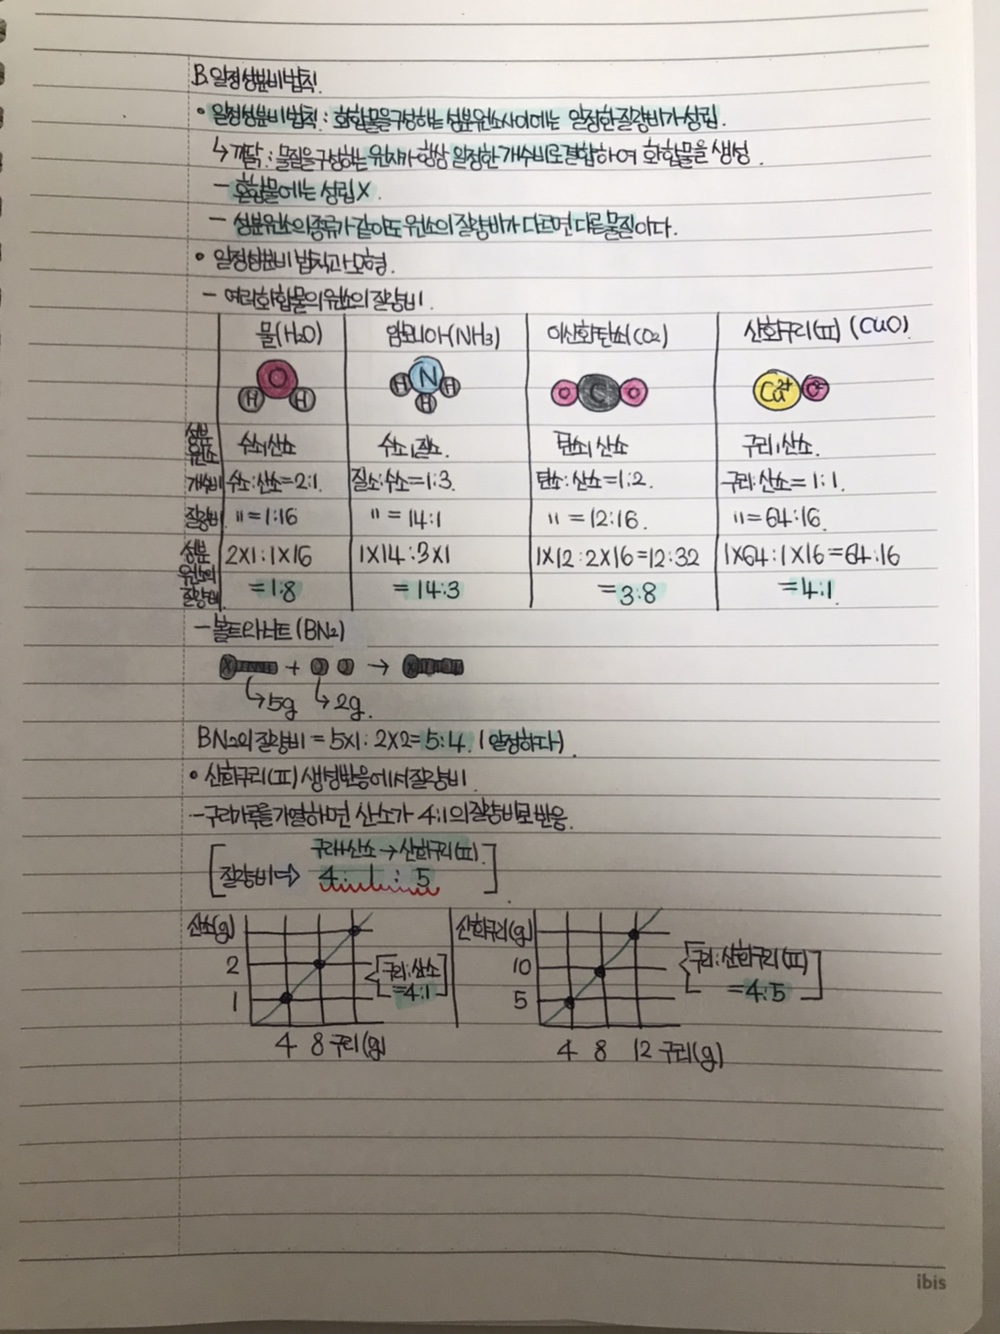 B. 일정성분비법칙.
• 일정성분비법칙 : 화합물을구성하는 성분원소사이에는 일정한질량비가성립.
↳ 까닭 : 물질을구성하는 원자가 항상 일정한 개수비로결합하여 화합물을 생성.
- 혼합물에는 성립X.
- 성분원소의종류가같아도 원소의 질량비가 다르면 다른물질이다.
• 일정성분비 법칙과 모형.
- 여러화합물의원소의질량비.
물(H2O) 암모니아(NH3) 이산화탄소(CO2) 산화구리(II) (CuO)
O H H N H H H O C O Cu2+ O2-
성분원소 수소,산소 수소,질소. 탄소,산소 구리,산소.
개수비 수소:산소=2:1. 질소:수소=1:3. 탄소:산소=1:2. 구리:산소=1:1.
질량비 〃=1:16 〃=14:1 〃=12:16. 〃=64:16.
성분원소의질량비. 2X1:1X16 1X14:3X1 1X12:2X16=12:32 1X64:1X16=64:16
=1:8 =14:3 =3:8 =4:1.
- 볼트와너트(BN2)
+ →
↳5g ↳2g.
BN2의질량비=5X1:2X2=5:4. (일정하다).
• 산화구리(II) 생성반응에서질량비.
- 구리가루를가열하면 산소가 4:1의질량비로반응.
구리+산소→산화구리(II).
질량비⇒ 4: 1 : 5
산소(g) 산화구리(g)
2 10
1 5
구리:산소
=4:1
구리:산화구리(II)
=4:5
4 8 구리(g) 4 8 12 구리(g)
ibis